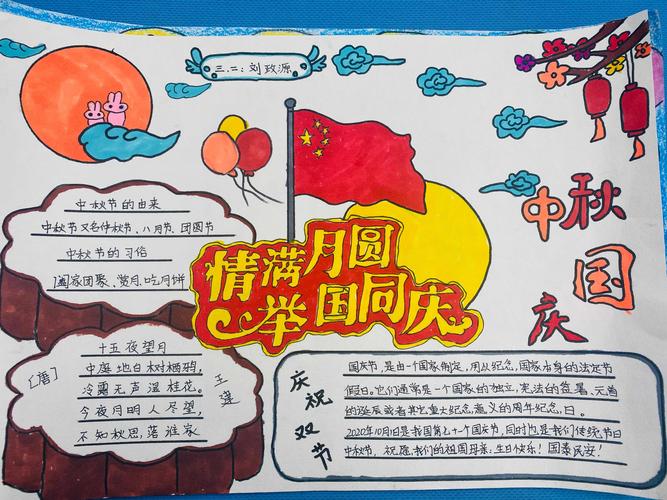 三.二：刘政源
中秋国庆
中秋节的由来
中秋节又名仲秋节、八月节、团圆节
中秋节的习俗
阖家团聚、赏月、吃月饼
情满月圆
举国同庆
十五夜望月
〔唐〕
王建
中庭地白树栖鸦，
冷露无声湿桂花。
今夜月明人尽望，
不知秋思落谁家
庆祝双节
国庆节，是由一个国家制定，用以纪念，国家本身的法定节
假日。它们通常是一个国家的独立，宪法的签署，元首
的诞辰或者其它重大纪念意义的周年纪念，日。
2020年10月1日是我国第七十一个国庆节，同时为，是我们传统节日
中秋节，祝愿我们的祖国母亲，生日快乐！国泰民安！